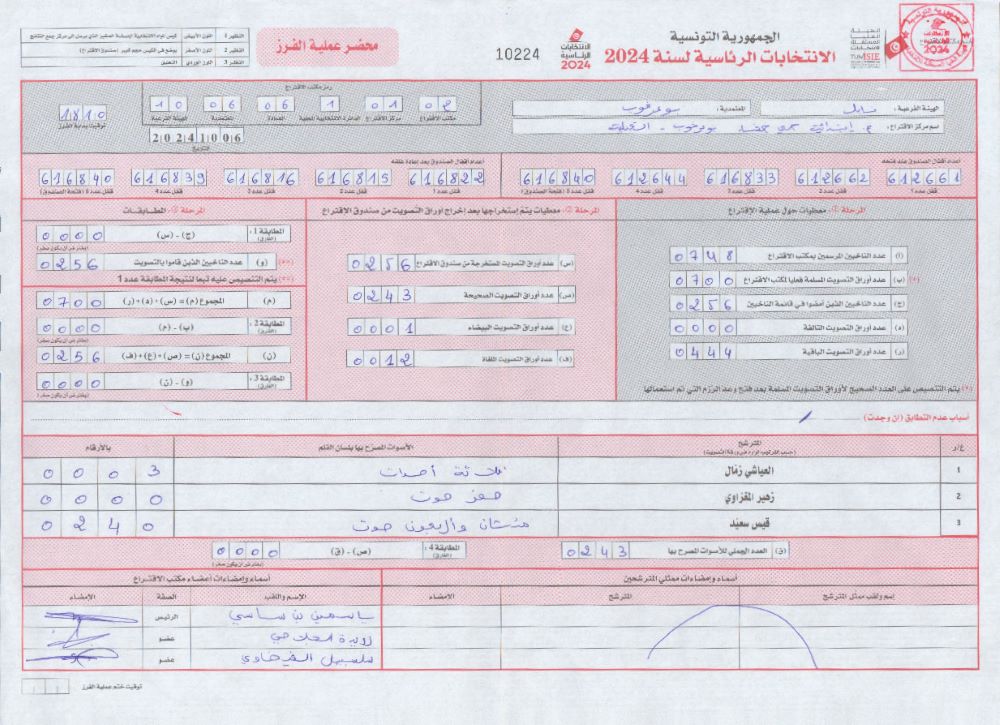 الجمهورية التونسية
الانتخابات الرئاسية لسنة 2024
الانتخابات الرئاسية 2024
10224
محضر عملية الفرز
النظير 1 اللون الأبيض
النظير 2 اللون الأصفر يوضع في الكيس حجم كبير (صندوق الاقتراع)
النظير 3 اللون الوردي التعليق
الهيئة الفرعية: نابل المعتمدية: بوعرقوب
اسم مركز الاقتراع:
رمز مكتب الاقتراع
02 01 1 06 06 10
مكتب الاقتراع مركز الاقتراع الدائرة الانتخابية المحلية العمادة المعتمدية الهيئة الفرعية
20241006
التاريخ
1810
توقيت بداية الفرز
أعداد أقفال الصندوق عند فتحه
612661 612662 616833 612644 616840
قفل عدد 1 قفل عدد 2 قفل عدد 3 قفل عدد 4 قفل عدد 5 (فتحة الصندوق)
أعداد أقفال الصندوق بعد إعادة غلقه
616822 616815 616816 616839 616840
قفل عدد 1 قفل عدد 2 قفل عدد 3 قفل عدد 4 قفل عدد 5 (فتحة الصندوق)
المرحلة 1: معطيات حول عملية الاقتراع
(أ) عدد الناخبين المرسمين بمكتب الاقتراع 0748
(*) (ب) عدد أوراق التصويت المسلمة فعليا لمكتب الاقتراع 0700
(ج) عدد الناخبين الذين أمضوا في قائمة الناخبين 0256
(د) عدد أوراق التصويت التالفة 0000
(ر) عدد أوراق التصويت الباقية 0444
(*) يتم التنصيص على العدد الصحيح لأوراق التصويت المسلمة بعد فتح وعد الرزم التي تم استعمالها
المرحلة 2: معطيات يتم إستخراجها بعد إخراج أوراق التصويت من صندوق الاقتراع
(س) عدد أوراق التصويت المستخرجة من صندوق الاقتراع 0256
(ص) عدد أوراق التصويت الصحيحة 0243
(ع) عدد أوراق التصويت البيضاء 0001
(ف) عدد أوراق التصويت الملغاة 0012
المرحلة 3: المطابقات
المطابقة 1: (الفارق) (ج) - (س) 0000
(يفترض أن يكون صفر)
(**) (و) عدد الناخبين الذين قاموا بالتصويت 0256
(**) يتم التنصيص عليه تبعا لنتيجة المطابقة عدد 1
(م) المجموع (م) = (س) + (د) + (ر) 0700
المطابقة 2: (الفارق) (ب) - (م) 0000
(يفترض أن يكون صفر)
(ن) المجموع (ن) = (ص) + (ع) + (ف) 0256
المطابقة 3: (الفارق) (و) - (ن) 0000
(يفترض أن يكون صفر)
أسباب عدم التطابق (إن وجدت)
ع/ر المترشح الأصوات المصرح بها بلسان القلم بالأرقام
(حسب الترتيب الوارد في ورقة التصويت)
1 العياشي زمال ثلاثة أصوات 0003
2 زهير المغزاوي صفر صوت 0000
3 قيس سعيد مئتان وأربعون صوت 0240
(ق) العدد الجملي للأصوات المصرح بها 0243
المطابقة 4: (الفارق) (ص) - (ق) 0000
(يفترض أن يكون صفر)
أسماء وإمضاءات ممثلي المترشحين
إسم ولقب ممثل المترشح المترشح الإمضاء
أسماء وإمضاءات أعضاء مكتب الاقتراع
الإسم واللقب الصفة الإمضاء
ياسمين بن ساسي الرئيس
عضو
عضو
توقيت ختم عملية الفرز